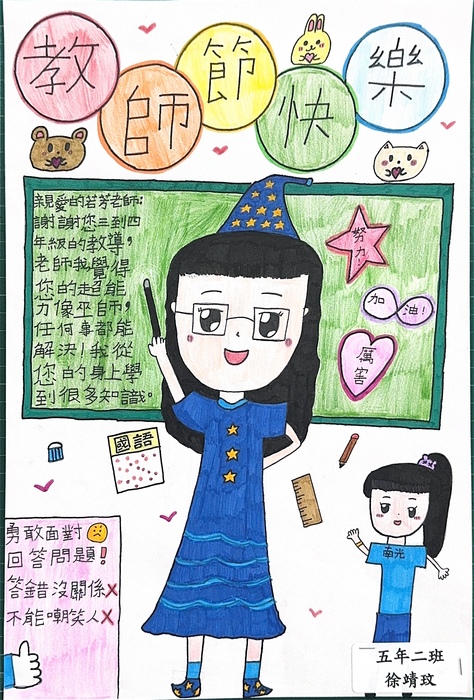 教師節快樂
親愛的若芳老師:
謝謝您三到四
年級的教導，
老師我覺得
您的超能
力像巫師，
任何事都能
解決!我從
您的身上學
到很多知識。
努力!
加油!
厲害
國語
勇敢面對
回答問題!
答錯沒關係x
不能嘲笑人x
南光
五年二班
徐靖玟